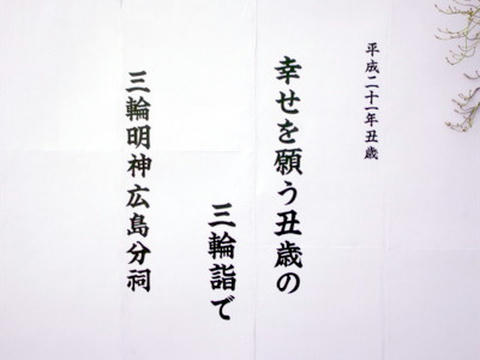 平成二十一年丑歳
幸せを願う丑歳の
三輪詣で
三輪明神広島分祠